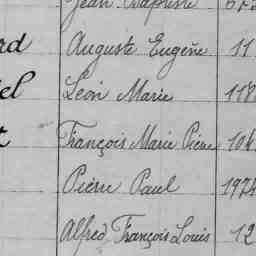 Jean Baptiste
rd Auguste Eugène 11
el Léon Marie 118
t François Marie Pierre 104
Pierre Paul 1974
Alfred François Louis 12